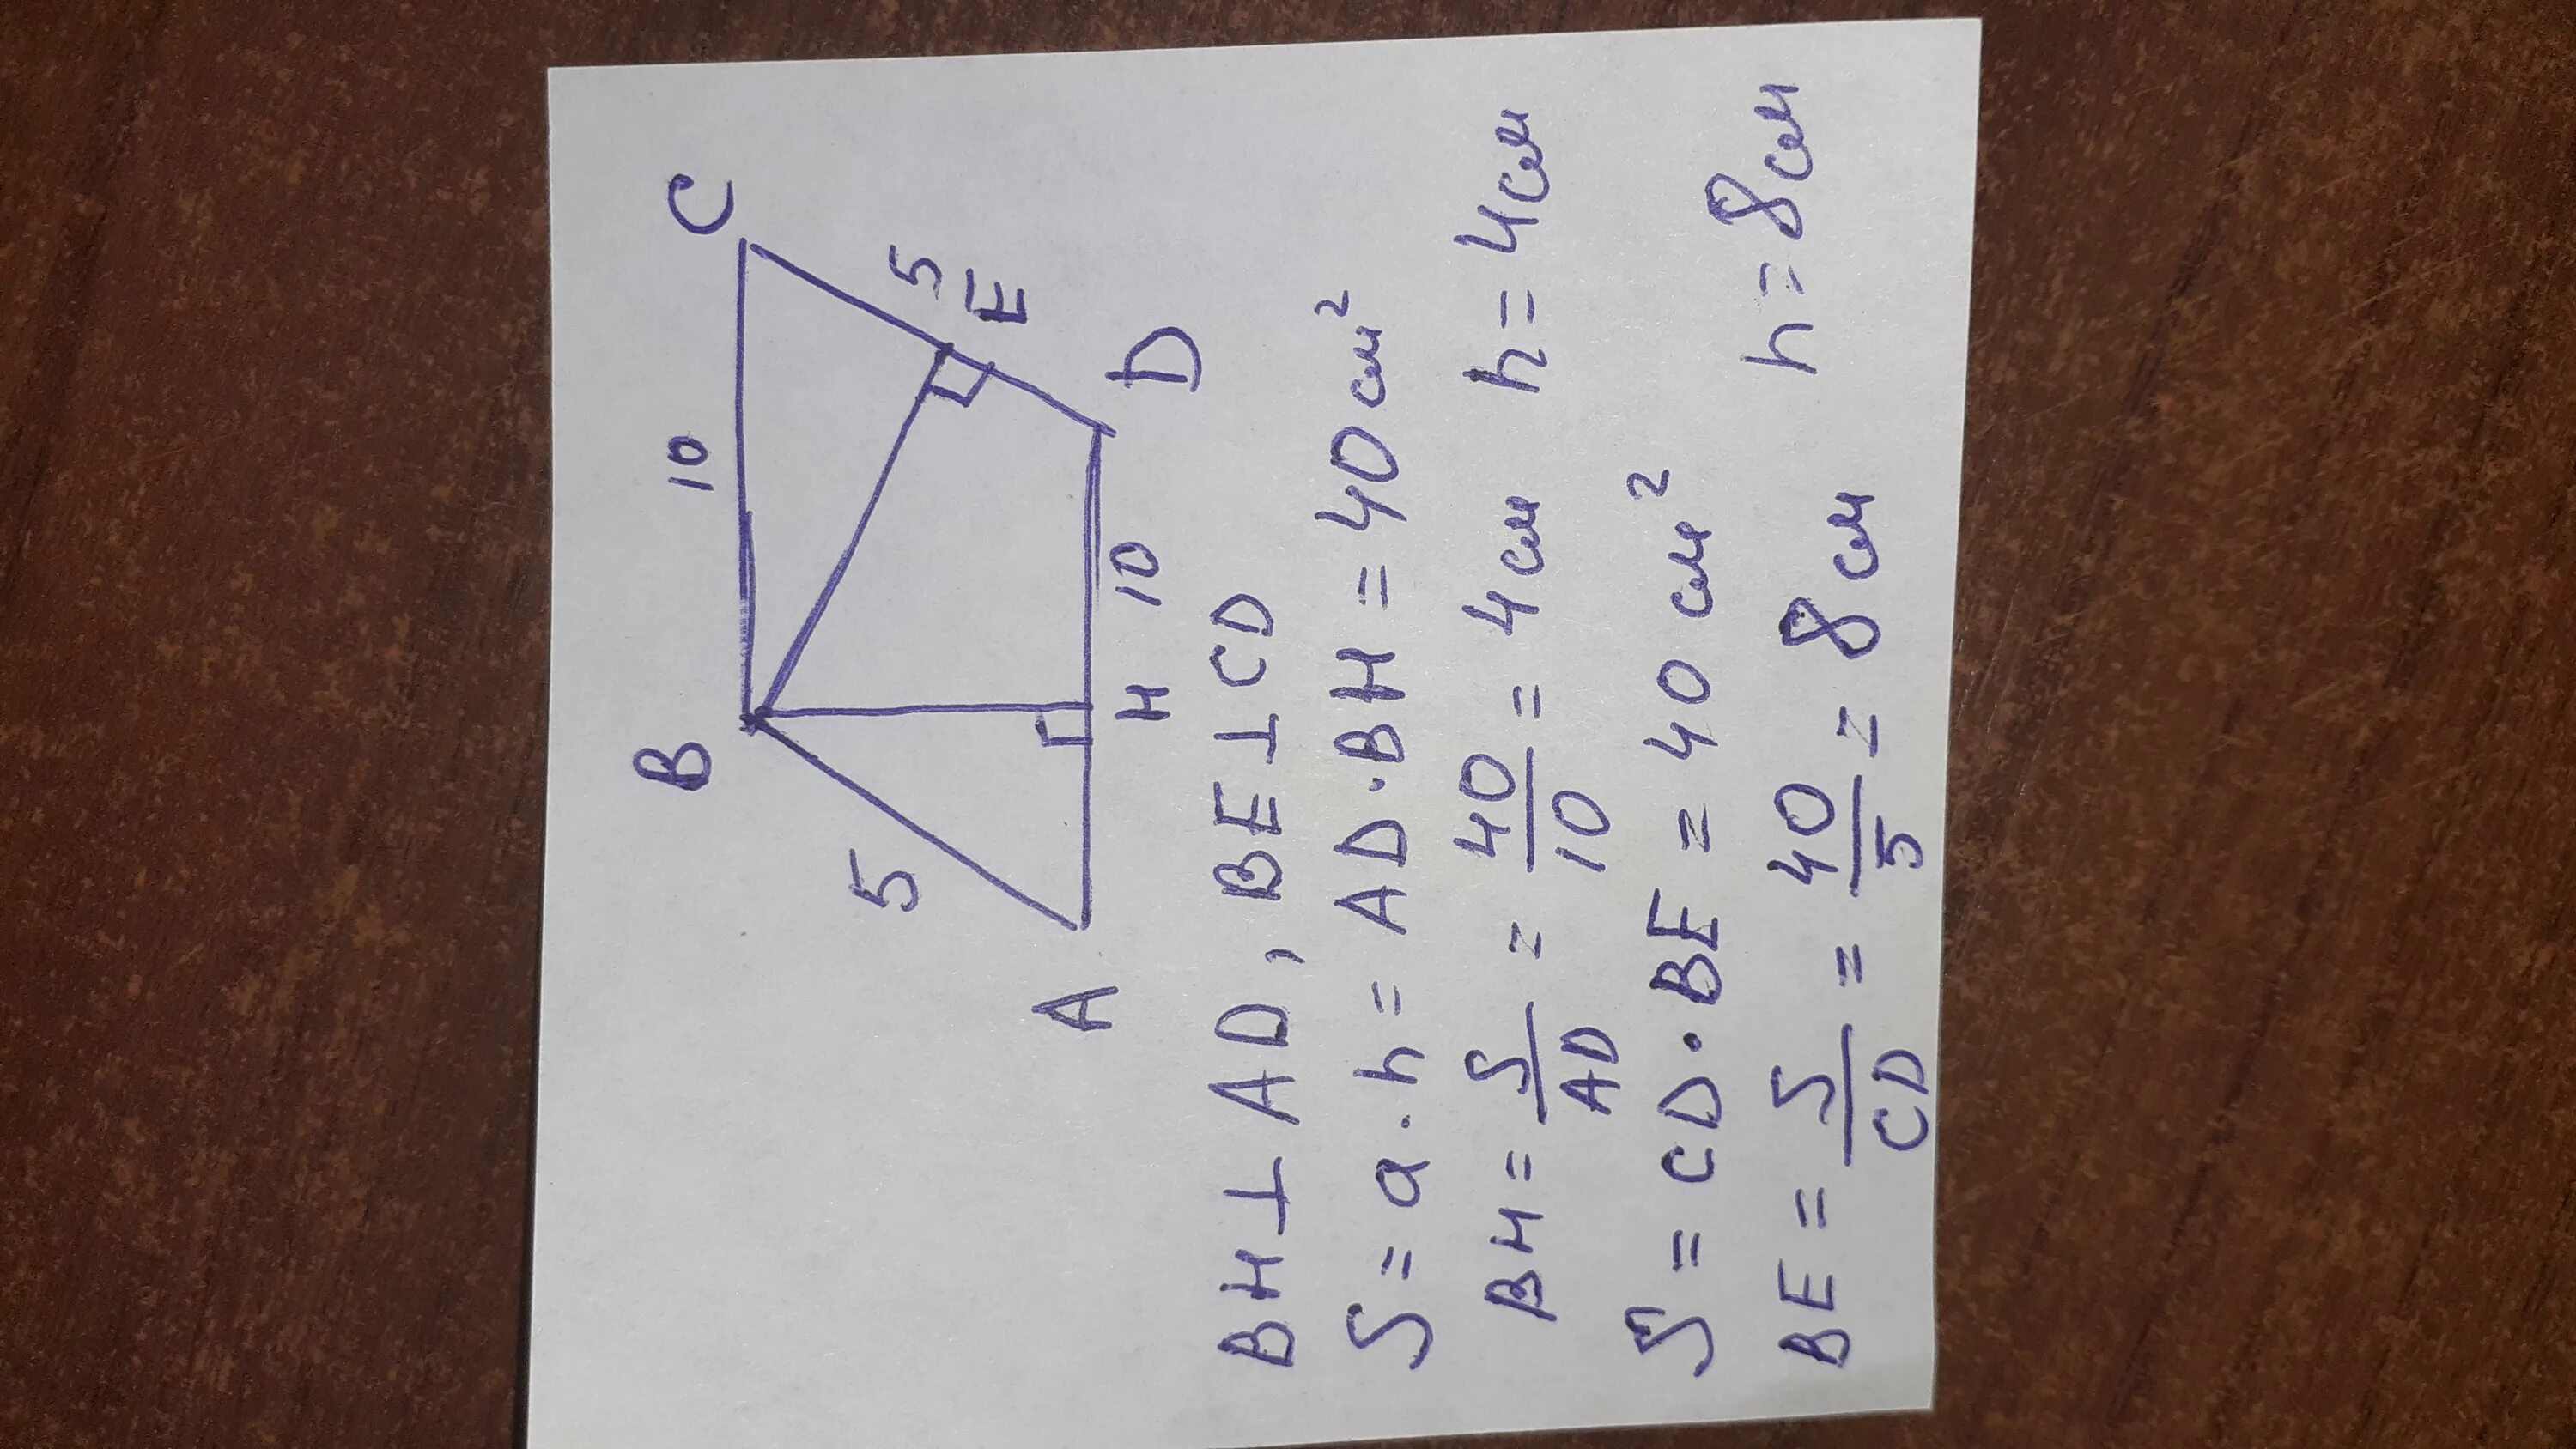 B 10 C
5 5
E
A H 10 D
BH ⊥ AD, BE ⊥ CD
S = a · h = AD · BH = 40 см²
BH = S/AD = 40/10 = 4 см h = 4 см
S = CD · BE = 40 см²
BE = S/CD = 40/5 = 8 см h = 8 см